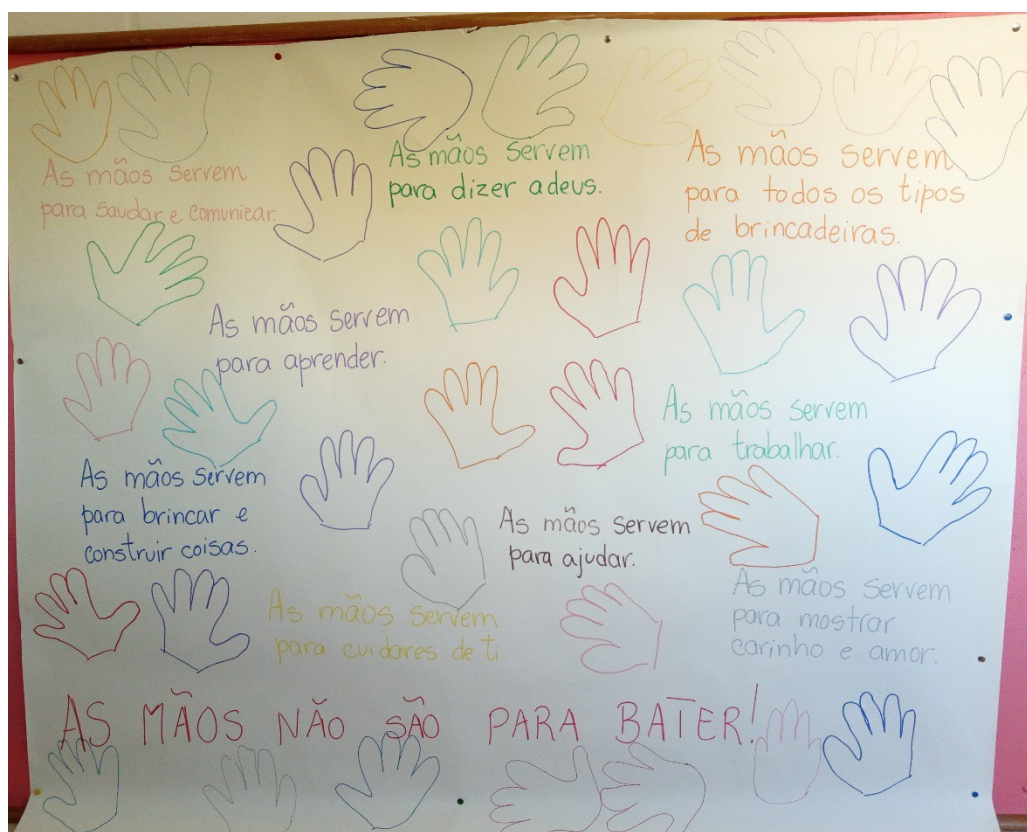 As mãos servem
para saudar e comunicar.
As mãos servem
para dizer adeus.
As mãos servem
para todos os tipos
de brincadeiras.
As mãos servem
para aprender.
As mãos servem
para trabalhar.
As mãos servem
para brincar e
construir coisas.
As mãos servem
para ajudar.
As mãos servem
para cuidares de ti.
As mãos servem
para mostrar
carinho e amor.
AS MÃOS NÃO SÃO PARA BATER!